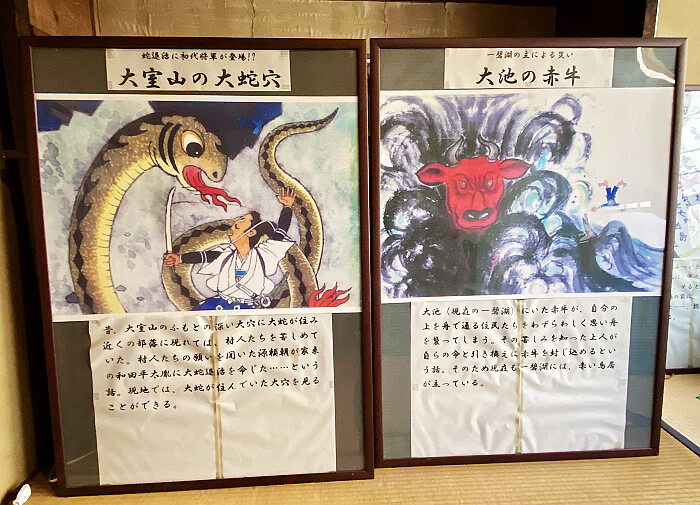 蛇退治に初代将軍が登場!?
大室山の大蛇穴
昔、大室山のふもとの深い大穴に大蛇が住み
近くの部落に現れては、村人たちを苦しめて
いた。村人たちの願いを聞いた源頼朝が家来
の和田平太胤に大蛇退治を命じた……という
話。現地では、大蛇が住んでいた大穴を見る
ことができる。
一碧湖の主による災い
大池の赤牛
大池(現在の一碧湖)にいた赤牛が、自分の
上を舟で通る住民たちをわずらわしく思い舟
を襲ってしまう。その苦しみを知った上人が
自らの命と引き換えに赤牛を封じ込めるとい
う話。そのため現在も一碧湖には、赤い鳥居
が立っている。